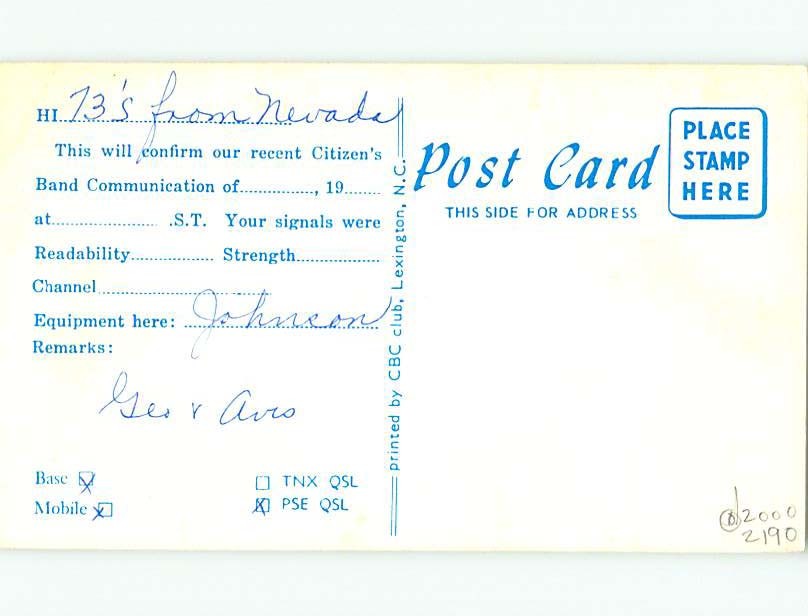 HI 73's from Nevada
This will confirm our recent Citizen's
Band Communication of..............., 19........
at..................... .S.T. Your signals were
Readability................ Strength................
Channel
Equipment here: Johnson
Remarks:
Geo & Avis
Base
Mobile
TNX QSL
PSE QSL
printed by CBC club, Lexington, N.C.
Post Card
THIS SIDE FOR ADDRESS
PLACE
STAMP
HERE
2000
2190